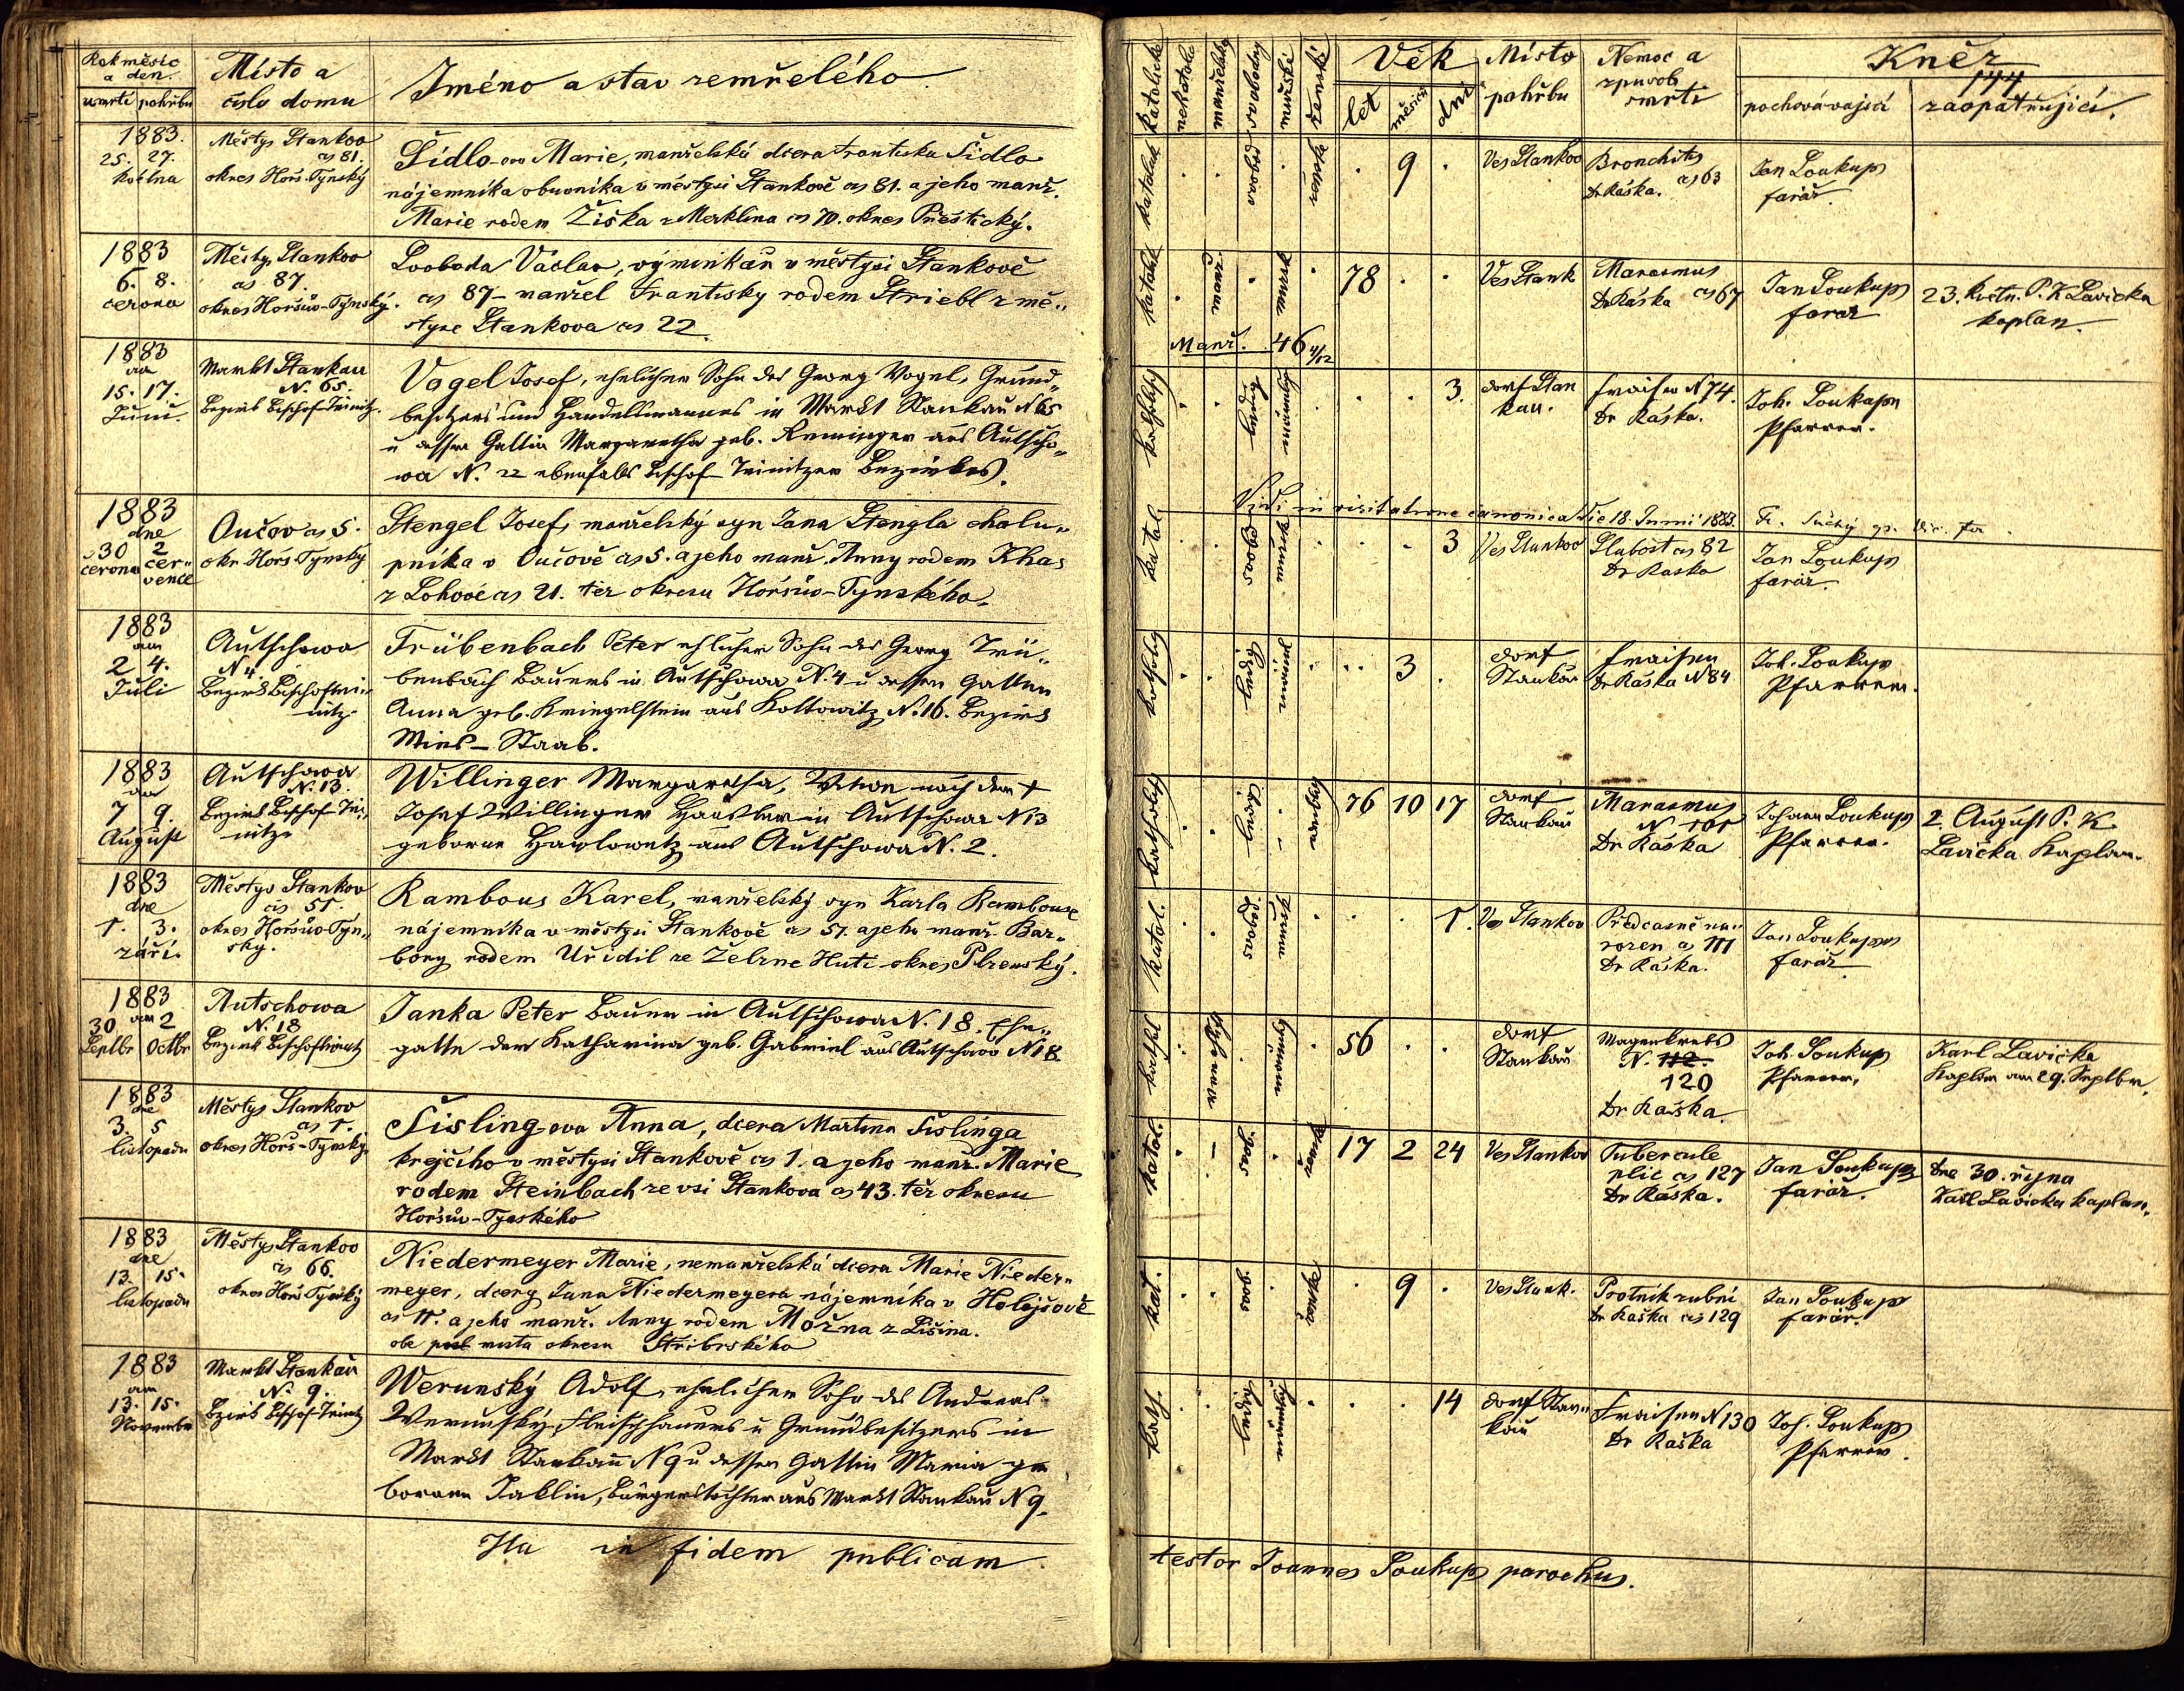 Rok měsíc
a den.
úmrtí pohřbu
Místo a
číslo domu
Jméno a stav zemřelého
1883.
25. 27.
května
Městys Stankov
čs 81.
okres Horš. Týnský
Šídlo-ova Marie, manželská dcera Františka Šídlo
nájemníka obuvníka v městysi Stankově čs 81. a jeho manž.
Marie rodem Žiška z Merklína čs 70. okres Přeštický.
1883
6. 8.
června
Městys Stankov
čs 87.
okres Horšův-Týnský.
Svoboda Václav, výminkář v městysi Stankově
čs 87 - manžel Františky rodem Striebl z mě„
styse Stankova čs 22.
1883
am
15. 17.
Juni.
Markt Stankau
N. 65.
Bezirk Bischof-Teinitz.
Vogel Josef, ehelicher Sohn des Georg Vogel, Grund„
besitzers und Handelsmannes in Markt Stankau N 65
u dessen Gattin Margaretha geb. Reminger aus Autscho„
wa N. 22 ebenfalls Bischof-Teinitzer Bezirkes.
1883
dne
30 2
června čer„
vence
Oučov čs 5.
okr. Horš-Týnský
Stengel Josef, manželský syn Jana Stengla chalu„
pníka v Oučově čs 5. a jeho manž. Anny rodem Khas
z Lohové čs 21. též okresu Horšův-Týnského.
1883
am
2 4.
Juli
Autschowa
N 4
Bezirk Bischoftei„
nitz.
Trübenbach Peter ehlicher Sohn des Georg Trü„
benbach Bauers in Autschowa N. 4 u dessen Gatten
Anna geb. Kriegelstein aus Kottowitz N. 16. Bezirk
Mies-Staab.
1883
am
7 9.
August
Autschowa
N. 13.
Bezirk Bischof-Tei„
nitz.
Willinger Margaretha, Witwe nach dem +
Josef Willinger Häusler in Autschowa N 13
geborne Hawlowetz aus Autschowa N. 2.
1883
dne
1. 3.
září.
Městys Stankov
čís 51.
okres Horšův-Týn„
ský.
Rambous Karel, manželský syn Karla Rambouse
nájemníka v městysi Stankově čs 51. a jeho manž. Bar„
bory rodem Uřidil ze Železné Huti okres Plzenský.
1883
am
30 2
Septbr Octbr
Autschowa
N. 18
Bezirk Bischofteinitz
Janka Peter Bauer in Autschowa N. 18. Ehe„
gatte der Katharina geb. Gabriel aus Autschowa N 18
1883
dne
3. 5
listopadu
Městys Stankov
čs 1.
okres Horš-Týnský.
Šisling-ova Anna, dcera Martina Šislinga
krejčího v městysi Stankově čs 1. a jeho manž. Marie
rodem Steinbach ze vsi Stankova čs 43. též okresu
Horšův-Týnského
1883
dne
13. 15.
listopadu
Městys Stankov
čs 66.
okres Horš Týnský
Niedermeyer Marie, nemanželská dcera Marie Nieder„
meyer, dcery Jana Niedermeyera nájemníka v Holejšově
čs 11. a jeho manž. Anny rodem Možna z Lišina.
obe místa okresu Stříbrského
1883
am
13. 15.
November
Markt Stankau
N. 9.
Bezirk Bischof-Teinitz
Werunský Adolf, ehelicher Sohn des Andreas
Werunský, Fleischhauers u Grundbesitzers in
Markt Stankau N 9 u dessen Gattin Maria ge
borenen Jaklin, Bürgerstochter aus Markt Stankau N 9.
Ita in fidem publicam
katolické
nekatolic
manželský
svobodný
mužští
ženské
Věk
let
měsíců
dní
Místo
pohřbu
Nemoc a
způsob
smrti
Kněz
144
pochovávající
zaopatřující.
katolick
svobod
ženská
9
Ves Stankov
Bronchitis
Dr Ráška. čs 63
Jan Loukup
farář.
katolík
78
Ves Stank
Marasmus
Dr Ráška čs 67
Jan Loukup
farář
23. květn. P. K Lavicka
kaplan.
Manž. 46 4/12
3.
Dorf Stan
kau.
Fraisen N 74.
Dr Ráška.
Joh. Loukup
Pfarrer.
Vidi in visitatione canonica die 18. Junii 1883.
katol
svobod
3
Ves Stankov
Slabost čs 82
Dr Raska
Jan Loukup
farář.
katholisch
ledig
3
Dorf
Stankau
Fraisen
Dr Ráska N 84
Joh. Loukup
Pfarrer.
76 10 17
Dorf
Stankau
Marasmus
N 101
Dr Ráška
Johann Loukup
Pfarrer.
2. August P. K
Lavička Kaplan.
katol.
svobod
1.
Ves Stankov
Předčasně na„
rozen čs 111
Dr Ráška.
Jan Loukup
farář
56
Dorf
Stankau
Magenkrebs
N. 112.
120
Dr Raška
Joh. Loukup
Pfarrer,
Karl Lavička
Kaplan am 29. Septbr.
katol.
svob
ženská
17 2 24
Ves Stankov
Tubercule
plic čs 127
Dr Ráška.
Jan Loukup
farář.
dne 30. října
Karl Lavicka kaplan.
kat.
svob
ženská
9
Ves Stank.
Psotník zubní
Dr Raška čs 129
Jan Loukup
farář.
kath.
ledig
14
Dorf Stan„
kau
Fraisen N 130
Dr Raška
Joh. Loukup
Pfarrer.
testor Joannes Loukup parochus.